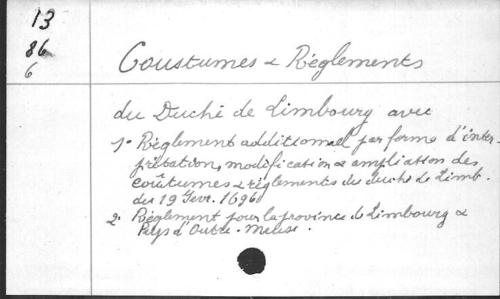 13
86
6
Coustumes & Règlements
du Duché de Limbourg avec
1° Règlement additionnel par forme d'inter-
prétation, modification & ampliation des
coûtumes & règlements du duché de Limb.
du 19 Fevr. 1696
2° Règlement pour la province de Limbourg &
Pays d'Outre-Meuse.